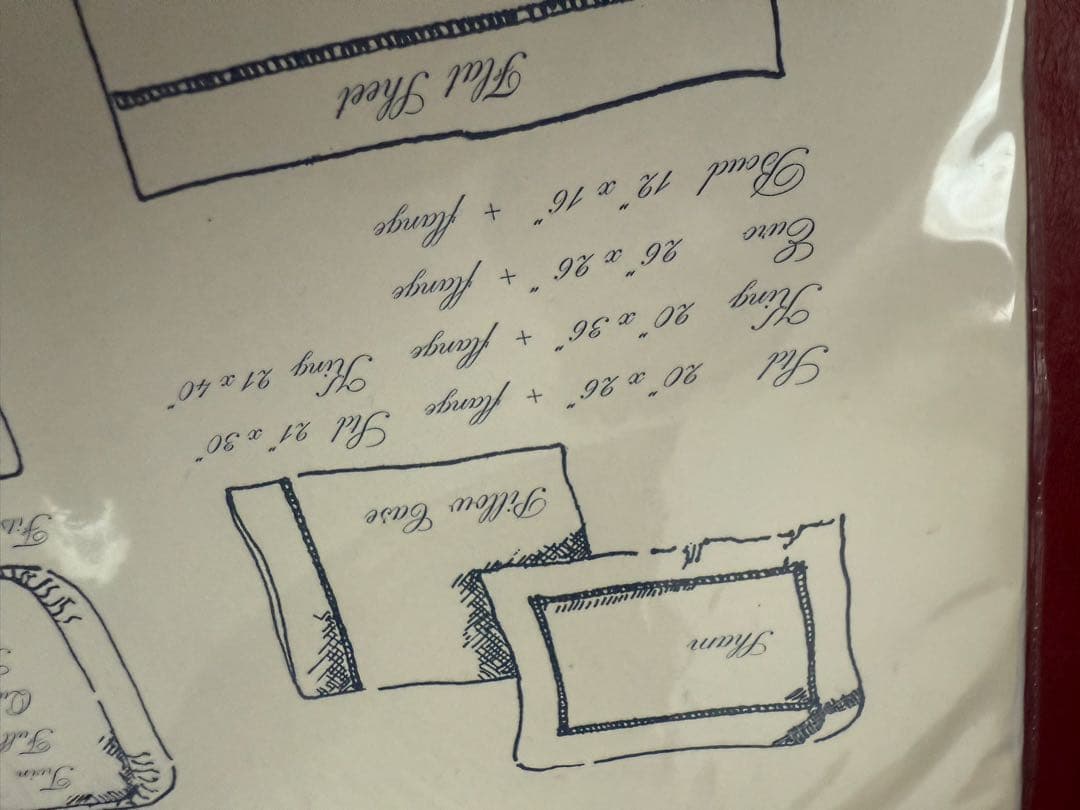 Twin
Full
Sham
Pillow Case
Std 20" x 26" + flange Std 21" x 30"
King 20" x 36" + flange King 21 x 40"
Euro 26" x 26" + flange
Boud 12" x 16" + flange
Flat Sheet